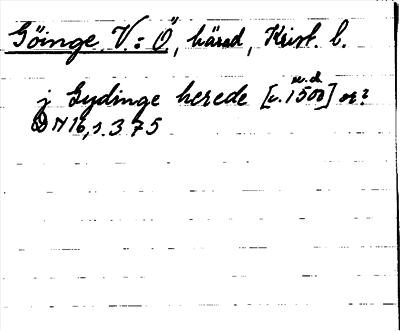 Göinge. V.: Ö, härad, Krist. l.
j Gydinge herede [c. 1500] or?
u.d.
DN 16, s. 375